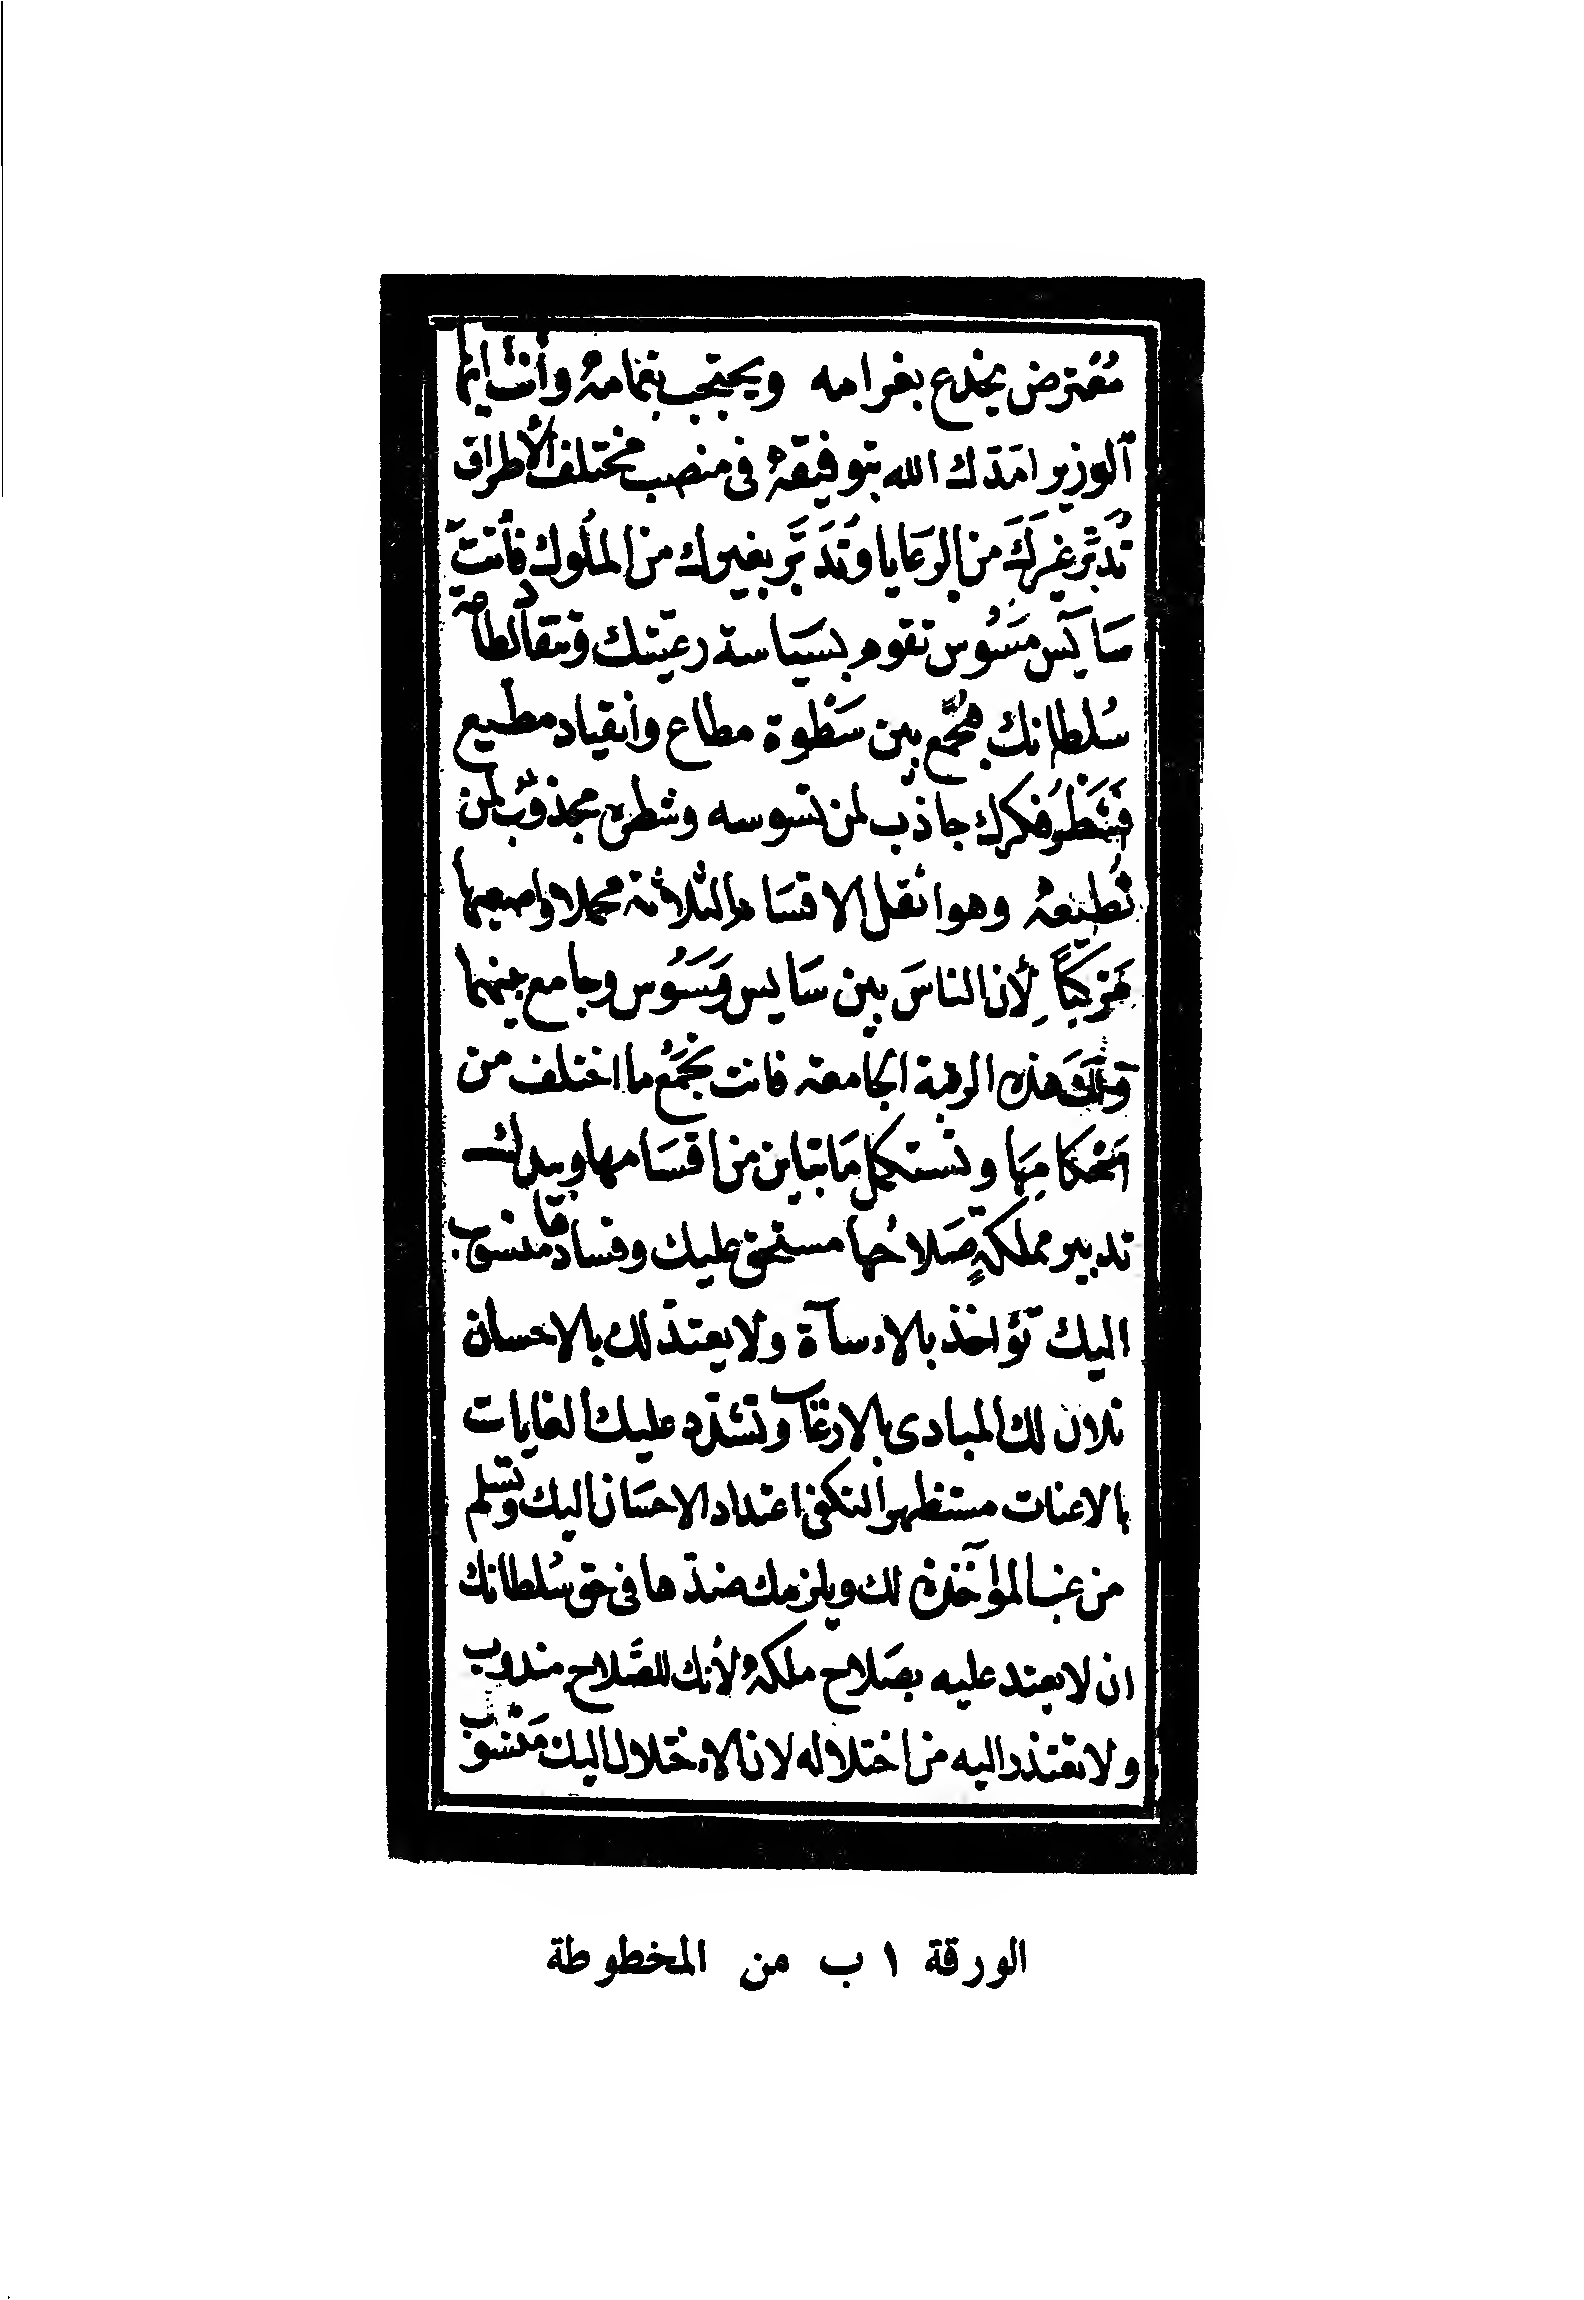 مفترض يخدع بغرامه ويحتجب بتمامهُ وأنت ايها
الوزير امدّك الله بتوفيقهُ فى منصب مختلف الأطراف
تُدَبّر غيرَكَ من الرعايا وتُدَبَّر بغيرك من الملُوك فأنتَ
سَايَس مَسُوس تقوم بسيَاسة رعيّتك وتنقاد لطاعة
سُلطانك فتجمع بين سَطْوة مطاع وانقياد مطيع
فشَطْرُ فكرك جاذب لمن تسوسه وشطره مجذوبٌ لمن
تُطيعهُ وهو اثقل الاقسَام الثلاثة محملا واصعبها
مَركباً لِأن الناسَ بين سَايس ومَسُوس وجامع بينهما
ولك هذه الرتبة الجامعة فانت تجْمَعُ ما اختلف من
احْكامِهَا وتستكمل مَا تباين من اقسَامها وبيدك
تدبير مملكةٍ صَلاحُها مستحق عليك وفسادها منسوب
اليك تؤاخذ بالاءسآة ولا يعتدّ لك بالاحسان
تلان لك المبادى بالارغاب وتشدّد عليك الغايات
بالاعنات مستظهرا لتكفى اعتداد الاحسَان اليك وتسْلم
من غب المؤاخَذة لك ويلزمك ضدّها فى حق سُلطانك
ان لا يعتد عليه بصَلاح ملكهُ لأنك للصَّلاح مندوب
ولا تعتذر اليه من اختلاله لان الاءختلال اليك مَنْسوب
الورقة ١ ب من المخطوطة